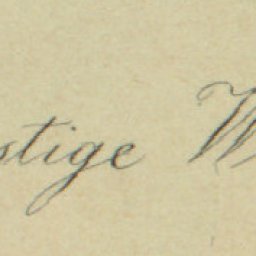 stige W